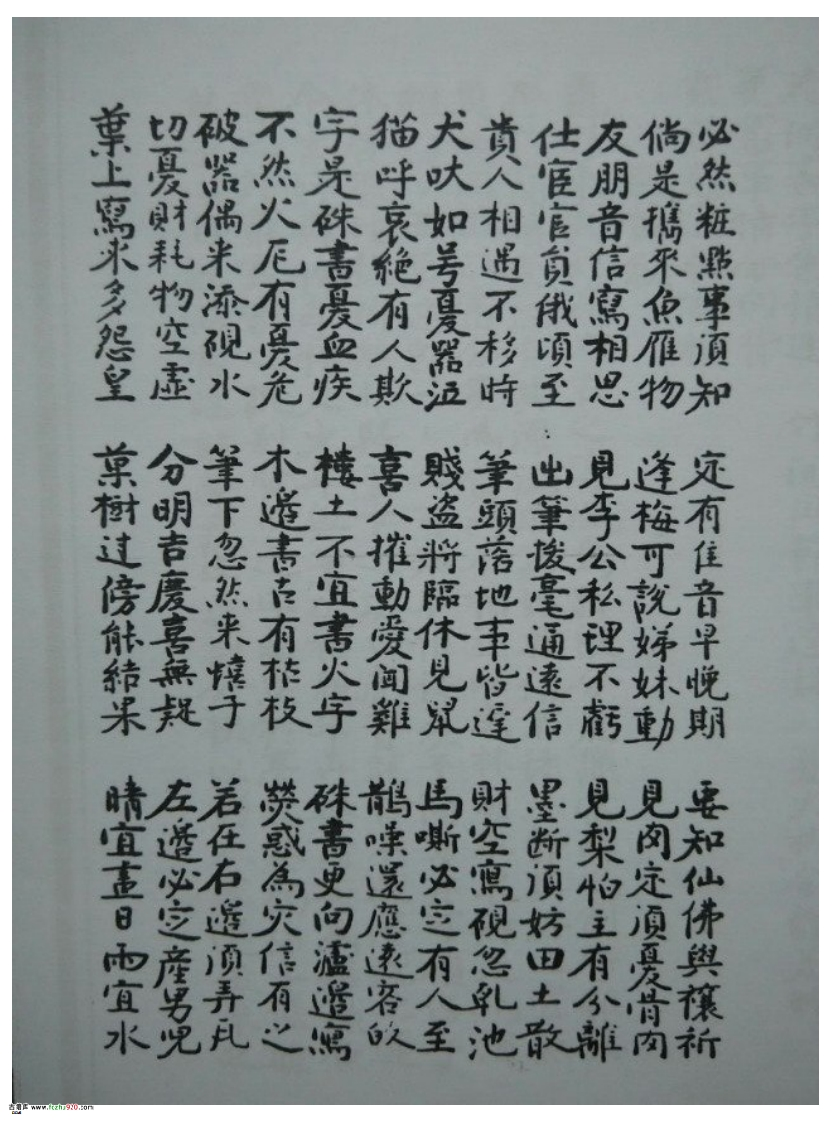 必然粧點事須知 定有佳音早晚期 要知仙佛與禳祈
倘是攜來魚雁物 逢梅可說娣妹動 見肉定須憂骨肉
友朋音信寫相思 見李公私理不虧 見梨怕主有分離
仕宦官員俄頃至 出筆撥毫通遠信 墨断須妨田土散
貴人相遇不移時 筆頭落地事皆遲 財空寫硯忽乹池
犬吠如号憂器泣 賤盜將臨休見鼠 馬嘶必定有人至
猫呼哀絕有人欺 喜人摧動愛聞雞 鵲噪還應遠客的
字是硃書憂血疾 楼土不宜書火字 硃書更向瀘邊寫
不然火厄有憂危 木邊書古有枯枝 熒惑為灾信有之
破器偶来添硯水 筆下忽然来憘子 若在右邊須弄瓦
切憂財耗物空虛 分明吉慶喜無疑 左邊必定産男兒
葉上寫来多怨皇 菓樹过傍能結果 晴宜畫日雨宜水
古易库 www.fczhj920.com